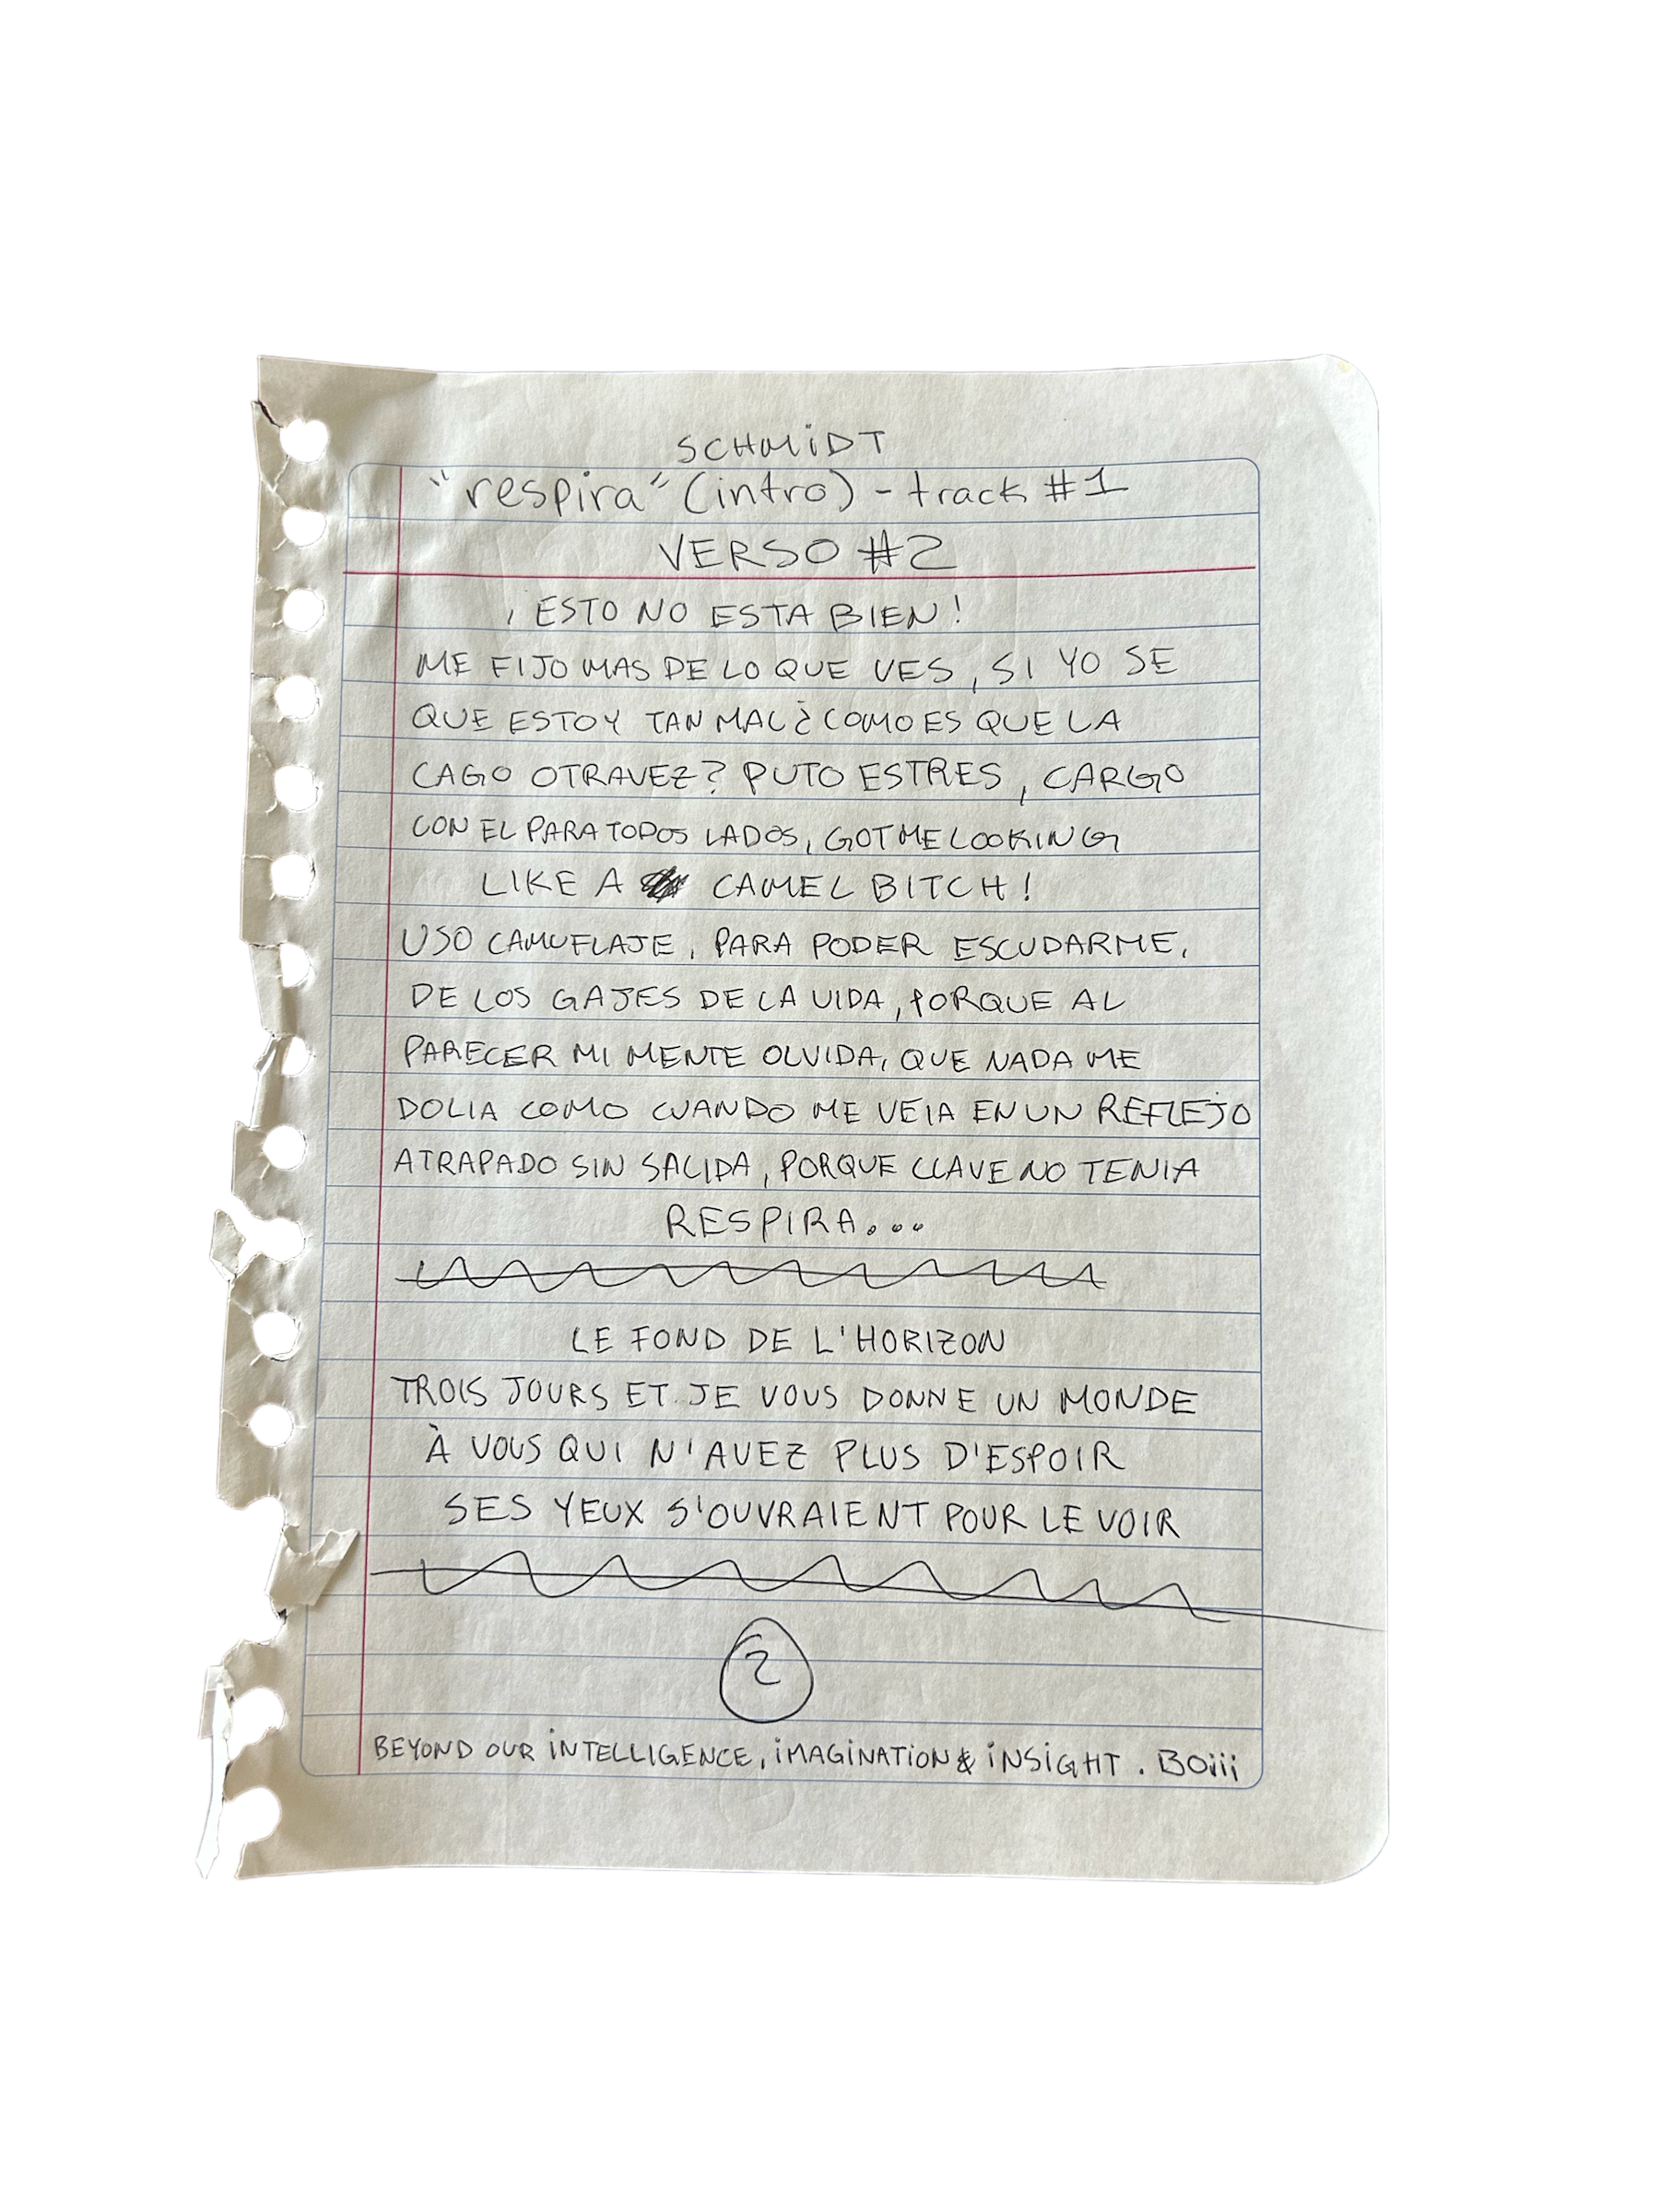 SCHMiDT
"respira" (intro) - track #1
VERSO #2
¡ESTO NO ESTA BIEN!
ME FIJO MAS DE LO QUE VES, SI YO SE
QUE ESTOY TAN MAL ¿COMO ES QUE LA
CAGO OTRAVEZ? PUTO ESTRES, CARGO
CON EL PARA TODOS LADOS, GOT ME LOOKING
LIKE A CAMEL BITCH!
USO CAMUFLAJE, PARA PODER ESCUDARME,
DE LOS GAJES DE LA VIDA, PORQUE AL
PARECER MI MENTE OLVIDA, QUE NADA ME
DOLIA COMO CUANDO ME VEIA EN UN REFLEJO
ATRAPADO SIN SALIDA, PORQUE LLAVE NO TENIA
RESPIRA...
LE FOND DE L'HORIZON
TROIS JOURS ET JE VOUS DONNE UN MONDE
À VOUS QUI N'AVEZ PLUS D'ESPOIR
SES YEUX S'OUVRAIENT POUR LE VOIR
2
BEYOND OUR iNTELLIGENCE, iMAGiNATiON & iNSiGHT. BOiii